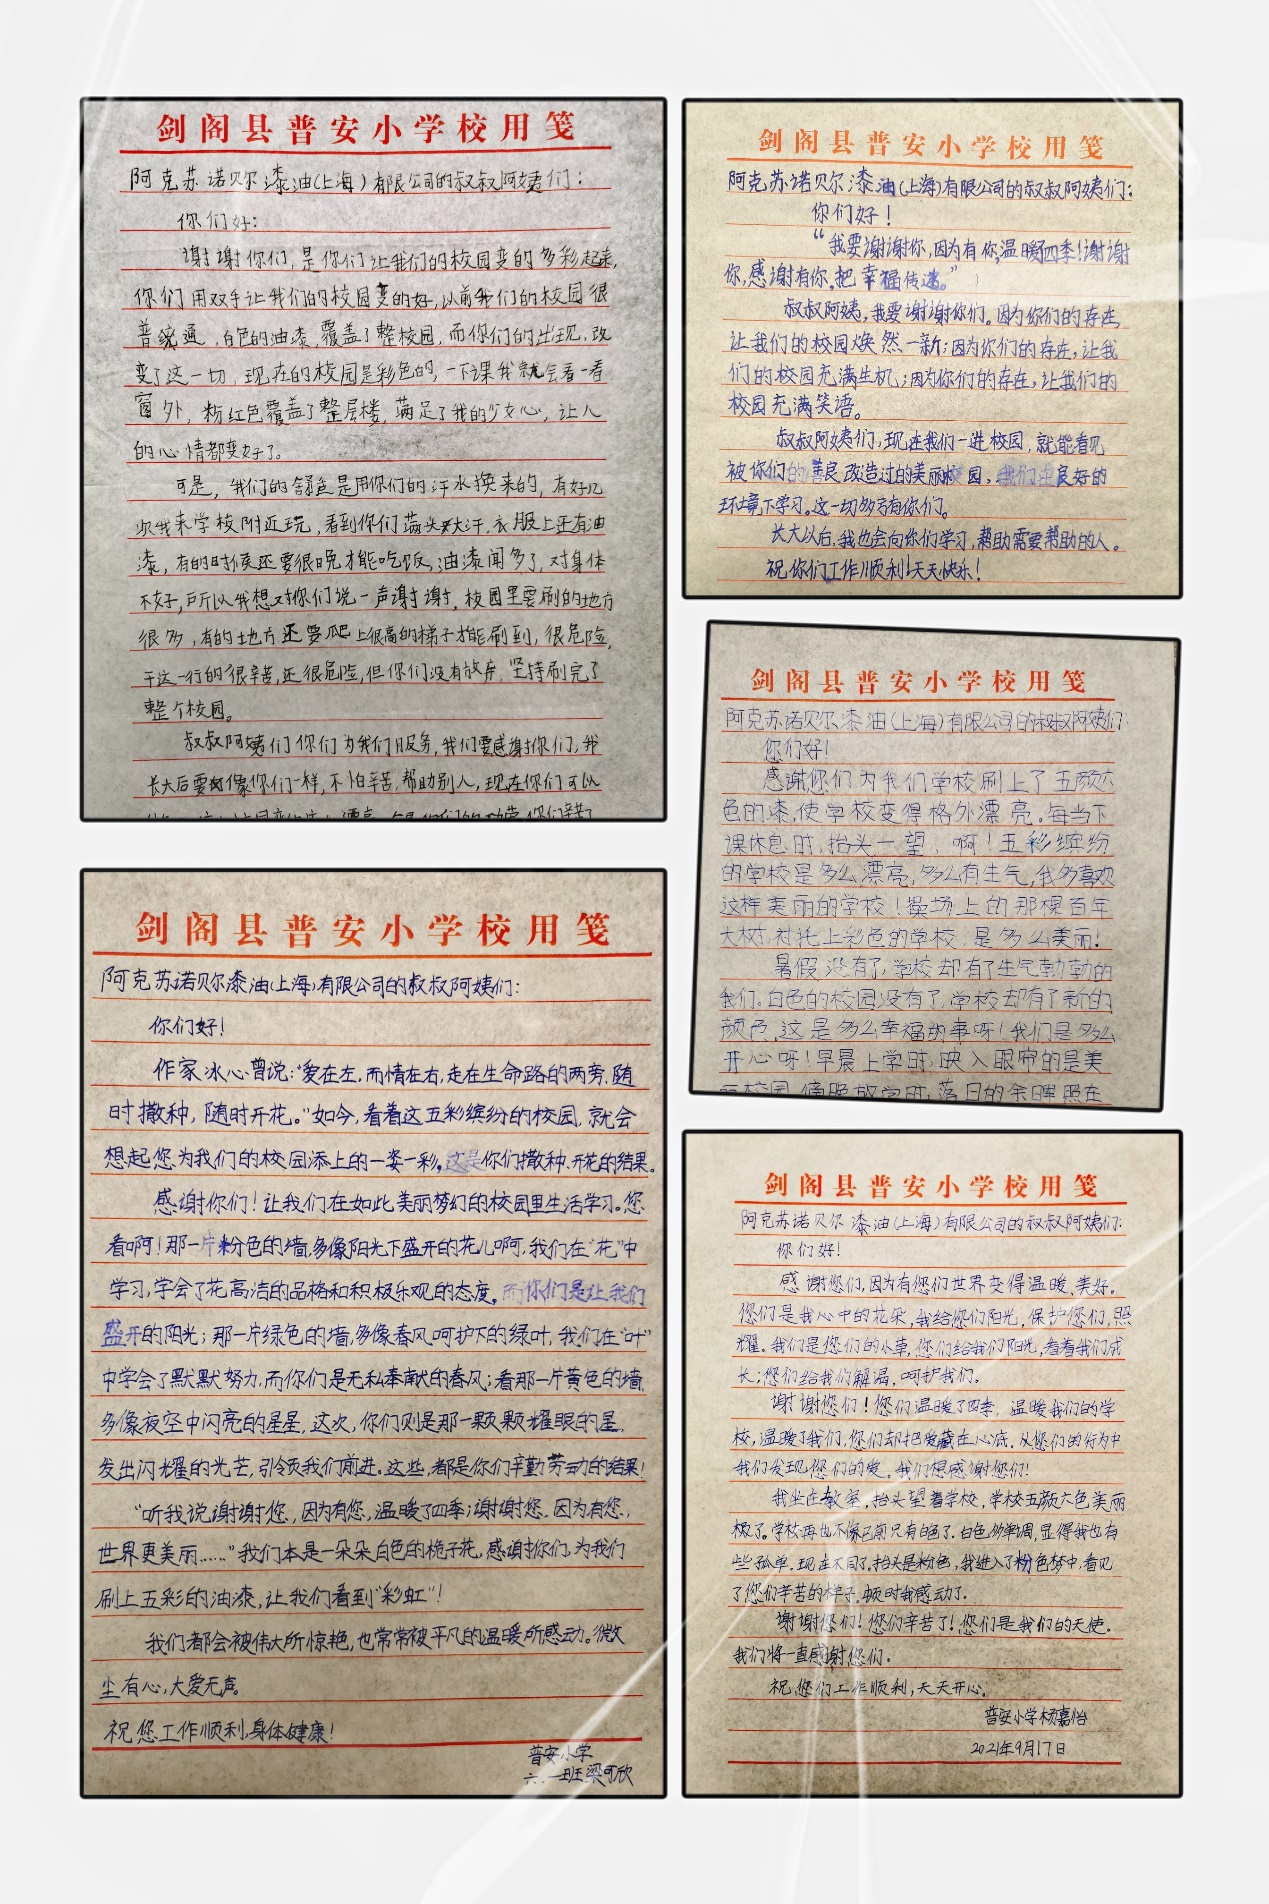 剑阁县普安小学校用笺
阿克苏诺贝尔漆油(上海)有限公司的叔叔阿姨们:
你们好:
谢谢你们,是你们让我们的校园变的多彩起来,
你们用双手让我们的校园变的好,以前我们的校园很
普通,白色的油漆,覆盖了整校园,而你们的出现,改
变了这一切,现在的校园是彩色的,一下课我就会看一看
窗外,粉红色覆盖了整层楼,满足了我的少女心,让人
的心情都变好了。
可是,我们的舒适是用你们的汗水换来的,有好几
次我来学校附近玩,看到你们满头大汗,衣服上还有油
漆,有的时候还要很晚才能吃饭,油漆闻多了,对身体
不好,所以我想对你们说一声谢谢,校园里要刷的地方
很多,有的地方还要爬上很高的梯子才能刷到,很危险,
干这一行的很辛苦,还很危险,但你们没有放弃,坚持刷完了
整个校园。
叔叔阿姨们你们为我们服务,我们要感谢你们,我
长大后要像你们一样,不怕辛苦,帮助别人,现在你们可以
剑阁县普安小学校用笺
阿克苏诺贝尔漆油(上海)有限公司的叔叔阿姨们:
你们好!
“我要谢谢你,因为有你,温暖四季!谢谢
你,感谢有你,把幸福传递。”
叔叔阿姨,我要谢谢你们。因为你们的存在,
让我们的校园焕然一新;因为你们的存在,让我
们的校园充满生机;因为你们的存在,让我们的
校园充满笑语。
叔叔阿姨们,现在我们一进校园,就能看见
被你们的善良改造过的美丽校园,我们在良好的
环境下学习。这一切多亏有你们。
长大以后,我也会向你们学习,帮助需要帮助的人。
祝你们工作顺利!天天快乐!
剑阁县普安小学校用笺
阿克苏诺贝尔漆油(上海)有限公司的叔叔阿姨们
你们好!
感谢你们为我们学校刷上了五颜六
色的漆,使学校变得格外漂亮。每当下
课休息时,抬头一望,啊!五彩缤纷
的学校是多么漂亮,多么有生气,我多喜欢
这样美丽的学校!操场上的那棵百年
大树,衬托上彩色的学校,是多么美丽!
暑假没有了,学校却有了生气勃勃的
我们。白色的校园没有了,学校却有了新的
颜色,这是多么幸福的事呀!我们是多么
开心呀!早晨上学时,映入眼帘的是美
丽校园,傍晚放学时,落日的余晖照在
剑阁县普安小学校用笺
阿克苏诺贝尔漆油(上海)有限公司的叔叔阿姨们:
你们好!
作家冰心曾说:“爱在左,而情在右,走在生命路的两旁,随
时撒种,随时开花。”如今,看着这五彩缤纷的校园,就会
想起您为我们的校园添上的一姿一彩,这是你们撒种、开花的结果。
感谢你们!让我们在如此美丽梦幻的校园里生活学习。您
看啊!那一片粉色的墙,多像阳光下盛开的花儿啊,我们在“花”中
学习,学会了花高洁的品格和积极乐观的态度,而你们是让我们
盛开的阳光;那一片绿色的墙,多像春风呵护下的绿叶,我们在“叶”
中学会了默默努力,而你们是无私奉献的春风;看那一片黄色的墙,
多像夜空中闪亮的星星,这次,你们则是那一颗颗耀眼的星,
发出闪耀的光芒,引领我们前进。这些,都是你们辛勤劳动的结果!
“听我说谢谢您,因为有您,温暖了四季;谢谢您,因为有您,
世界更美丽……”我们本是一朵朵白色的栀子花,感谢你们,为我们
刷上五彩的油漆,让我们看到“彩虹”!
我们都会被伟大所惊艳,也常常被平凡的温暖所感动。微
尘有心,大爱无声。
祝您工作顺利,身体健康!
普安小学
六.一班梁可欣
剑阁县普安小学校用笺
阿克苏诺贝尔漆油(上海)有限公司的叔叔阿姨们:
你们好!
感谢您们,因为有您们世界变得温暖、美好。
您们是我心中的花朵,我给您们阳光,保护您们,照
耀。我们是您们的小草,您们给我们阳光,看着我们成
长;您们给我们解渴,呵护我们。
谢谢您们!您们温暖了四季,温暖我们的学
校,温暖了我们,您们却把爱藏在心底,从您们的行为中
我们发现您们的爱。我们想感谢您们!
我坐在教室,抬头望着学校,学校五颜六色美丽
极了。学校再也不像已前只有白色了,白色多单调,显得我也有
些孤单,现在不同了。抬头是粉色,我进入了粉色梦中,看见
了您们辛苦的样子,顿时我感动了。
谢谢您们!您们辛苦了!您们是我们的天使。
我们将一直感谢您们。
祝您们工作顺利,天天开心。
普安小学杨嘉怡
2021年9月17日